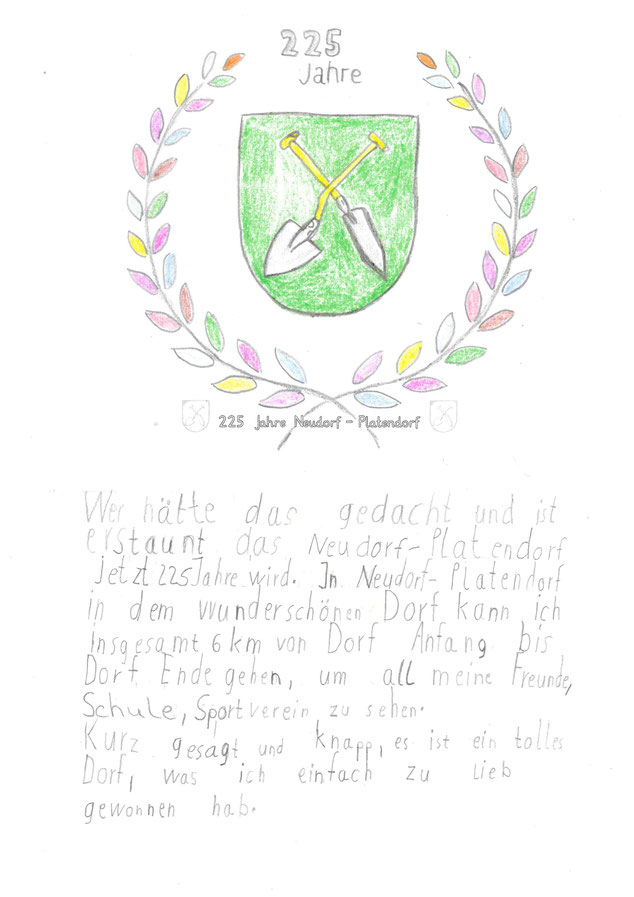 225
Jahre
225 Jahre Neudorf - Platendorf
Wer hätte das gedacht und ist
erstaunt das Neudorf-Platendorf
jetzt 225 Jahre wird. In Neudorf-Platendorf
in dem wunderschönen Dorf kann ich
insgesamt 6 km von Dorf Anfang bis
Dorf Ende gehen, um all meine Freunde,
Schule, Sportverein zu sehen.
Kurz gesagt und knapp, es ist ein tolles
Dorf, was ich einfach zu lieb
gewonnen hab.